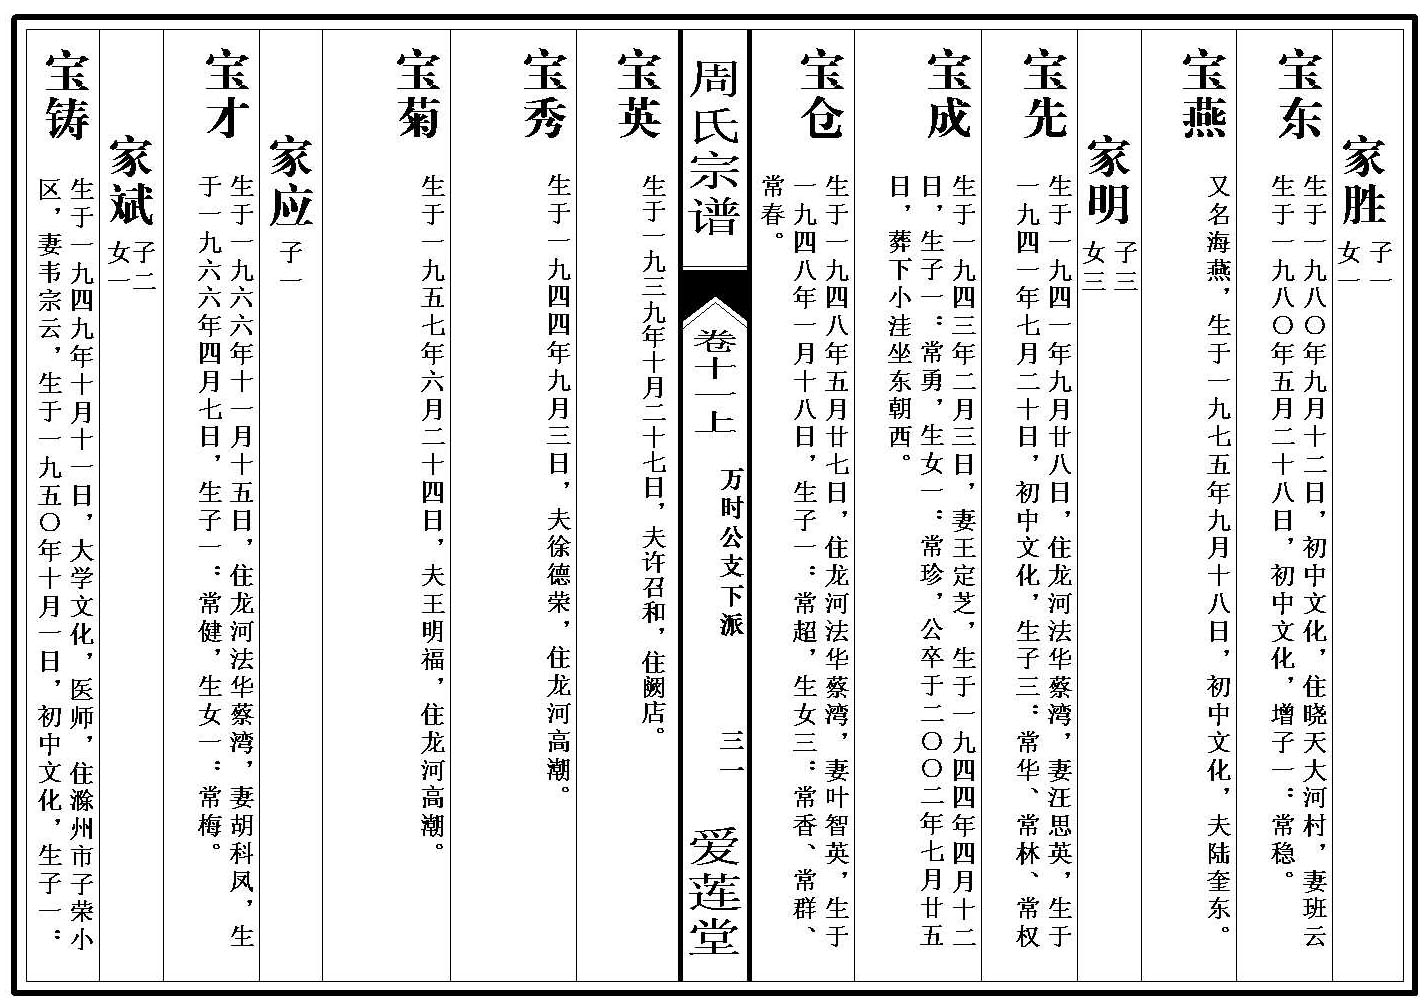 家胜
子一
女一
宝东
生于一九八〇年九月十二日，初中文化，住晓天大河村，妻班云
生于一九八〇年五月二十八日，初中文化，增子一：常稳。
宝燕
又名海燕，生于一九七五年九月十八日，初中文化，夫陆奎东。
家明
子三
女三
宝先
生于一九四一年九月廿八日，住龙河法华蔡湾，妻汪思英，生于
一九四一年七月二十日，初中文化，生子三：常华、常林、常权
宝成
生于一九四三年二月三日，妻王定芝，生于一九四四年四月十二
日，生子一：常勇，生女一：常珍，公卒于二〇〇二年七月廿五
日，葬下小洼坐东朝西。
宝仓
生于一九四八年五月廿七日，住龙河法华蔡湾，妻叶智英，生于
一九四八年一月十八日，生子一：常超，生女三：常香、常群、
常春。
周氏宗谱
卷十一上
万时公支下派
三一
爱莲堂
宝英
生于一九三九年十月二十七日，夫许召和，住阙店。
宝秀
生于一九四四年九月三日，夫徐德荣，住龙河高潮。
宝菊
生于一九五七年六月二十四日，夫王明福，住龙河高潮。
家应
子一
宝才
生于一九六六年十一月十五日，住龙河法华蔡湾，妻胡科凤，生
于一九六六年四月七日，生子一：常健，生女一：常梅。
家斌
子二
女一
宝铸
生于一九四九年十月十一日，大学文化，医师，住滁州市子荣小
区，妻韦宗云，生于一九五〇年十月一日，初中文化，生子一：